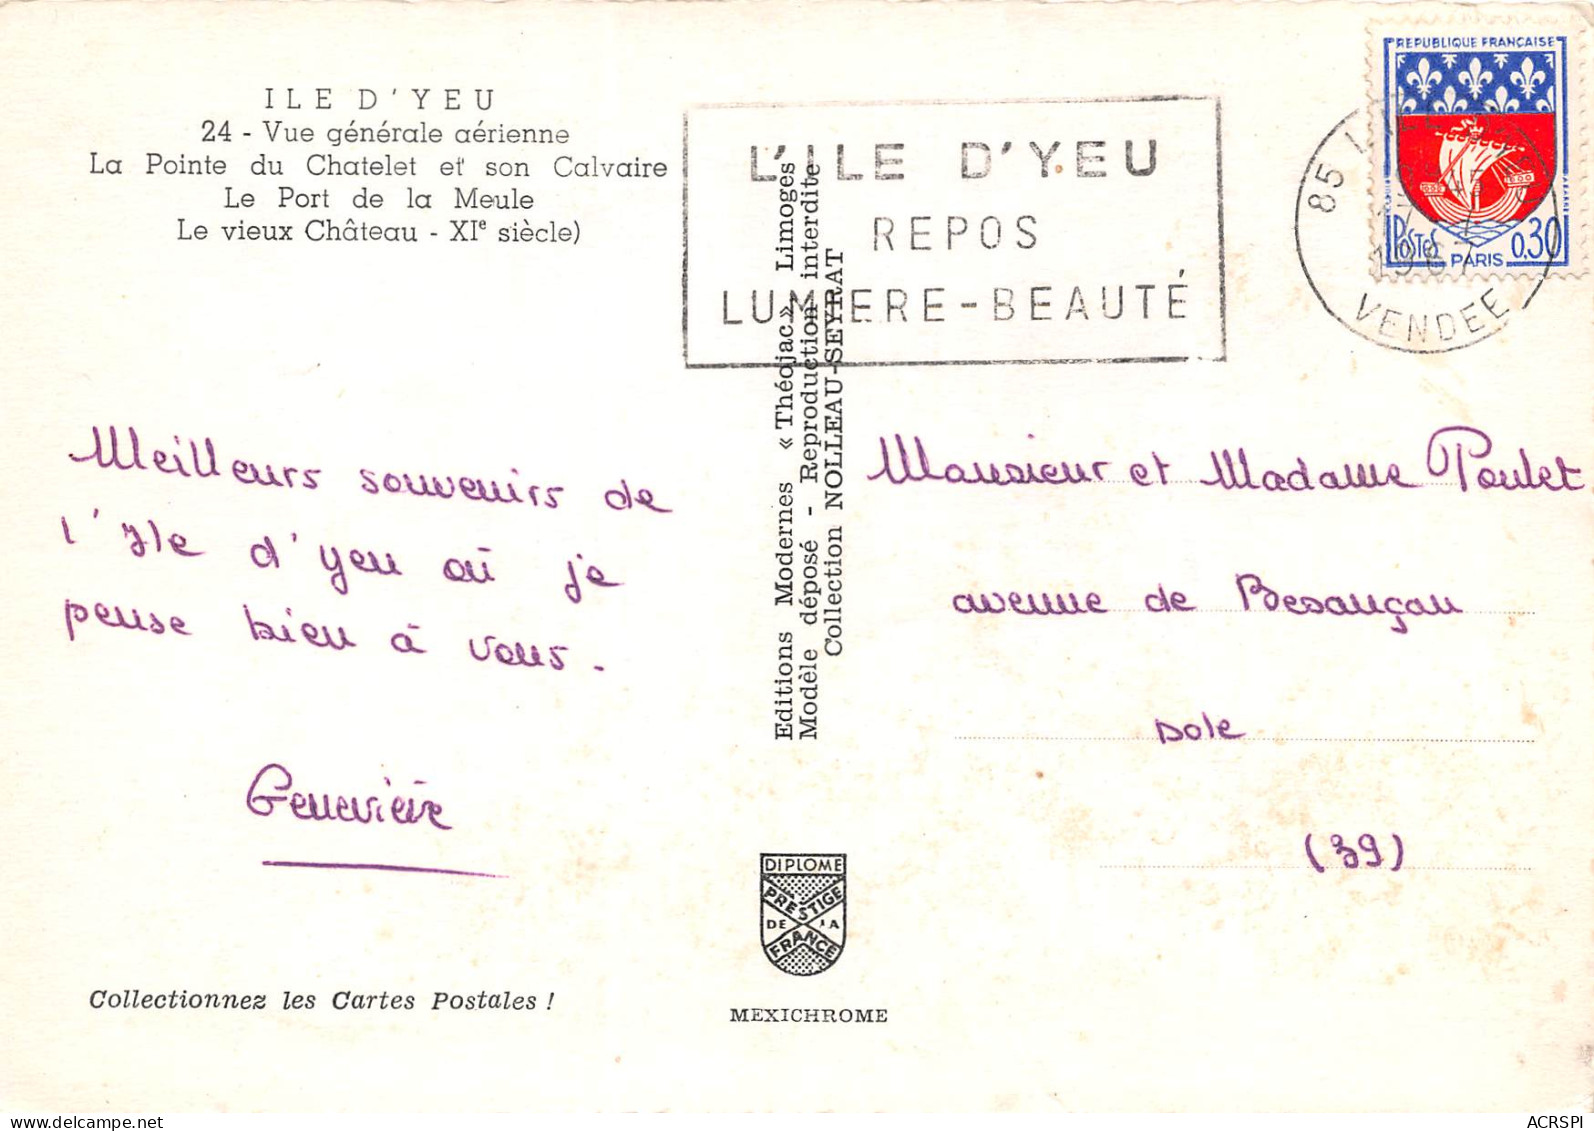 ILE D'YEU
24 - Vue générale aérienne
La Pointe du Chatelet et son Calvaire
Le Port de la Meule
Le vieux Château - XIe siècle)
L'ILE D'YEU
REPOS
LUMIERE-BEAUTÉ
REPUBLIQUE FRANÇAISE
POSTES
PARIS
0,30
85
1967
VENDEE
Meilleurs souvenirs de
l'Ile d'yeu où je
pense bien à vous.
Geneviève
Editions Modernes « Théojac » Limoges
Modèle déposé - Reproduction interdite
Collection NOLLEAU-SEYRAT
Monsieur et Madame Poulet
avenue de Besançon
Dole
(39)
DIPLOME
PRESTIGE
DE LA
FRANCE
MEXICHROME
Collectionnez les Cartes Postales !
www.delcampe.net
ACRSPI